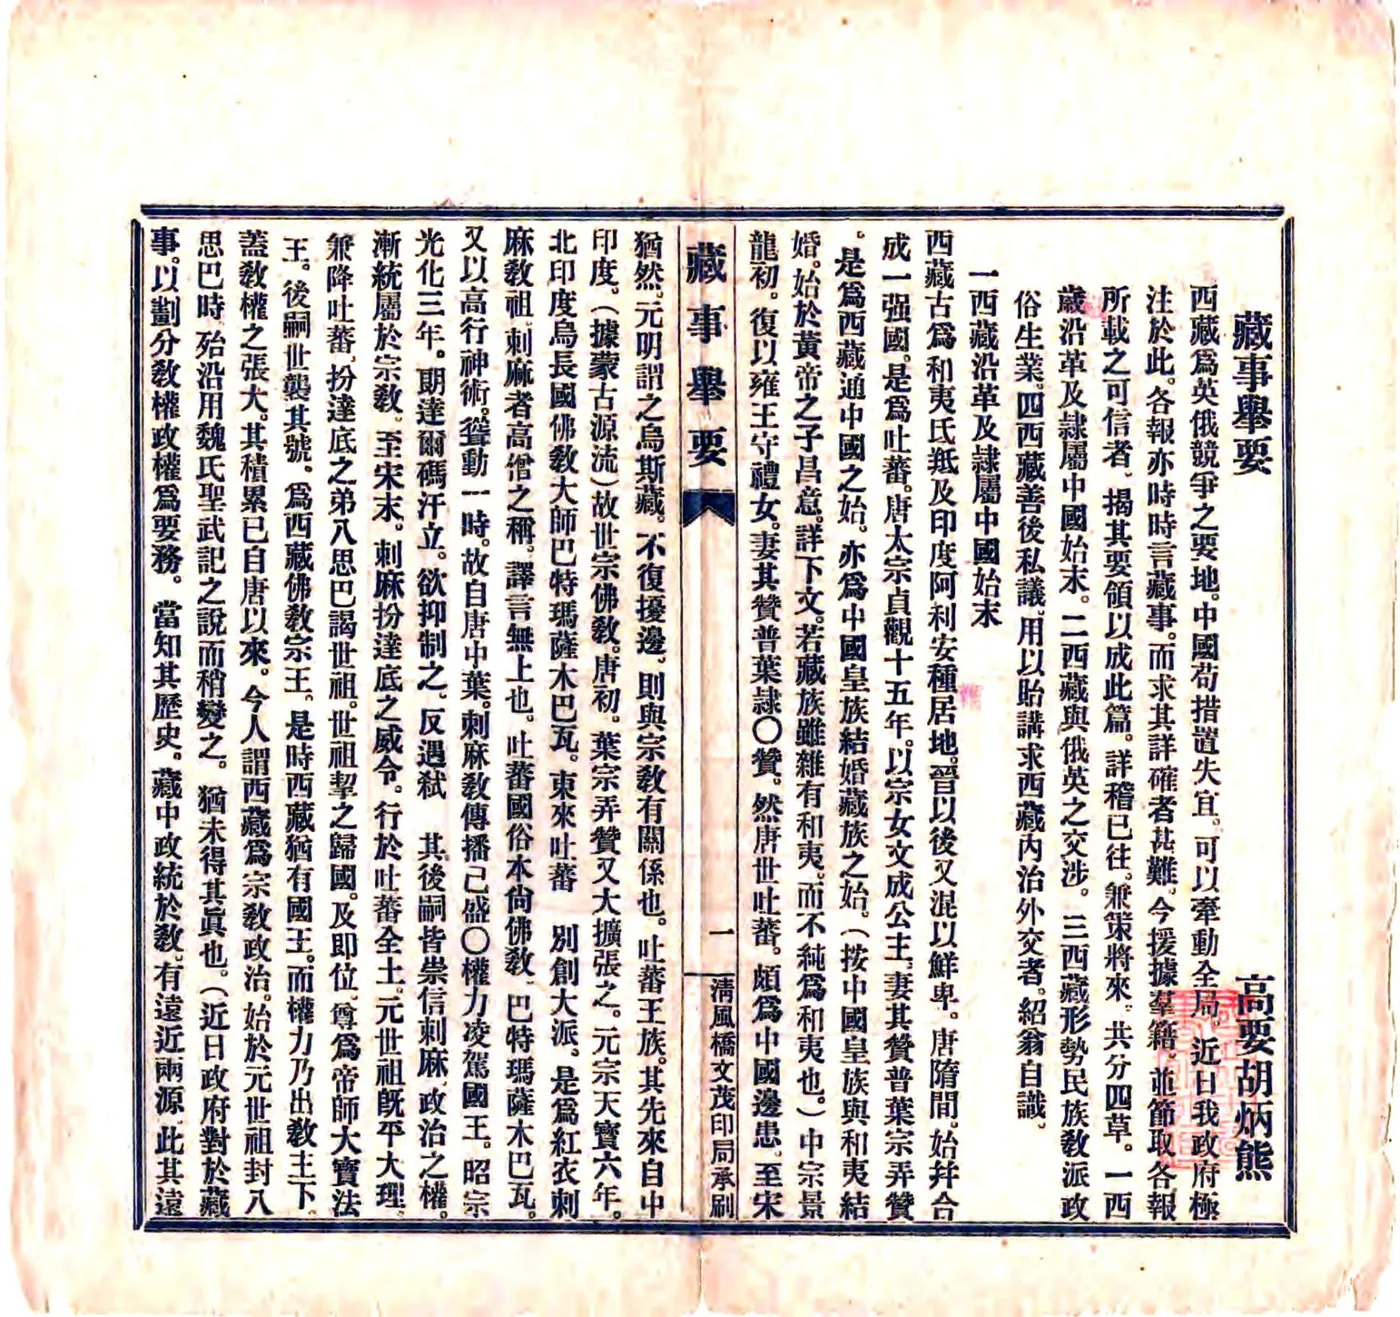 藏事舉要
高要胡炳熊
西藏爲英俄競爭之要地。中國苟措置失宜。可以牽動全局。近日我政府極
注於此。各報亦時時言藏事。而求其詳確者甚難。今援據羣籍。並節取各報
所載之可信者、揭其要領以成此篇。詳稽已往。兼策將來。共分四草。一西
藏沿革及隷屬中國始末。二西藏與俄英之交涉。三西藏形勢民族敎派政
俗生業。四西藏善後私議。用以貽講求西藏內治外交者。紹翁自識。
一西藏沿革及隷屬中國始末
西藏古爲和夷氏羝及印度阿利安種居地。晉以後又混以鮮卑。唐隋間。始幷合
成一强國。是爲吐蕃。唐太宗貞觀十五年。以宗女文成公主、妻其贊普葉宗弄贊
。是爲西藏通中國之始。亦爲中國皇族結婚藏族之始。（按中國皇族與和夷結
婚。始於黃帝之子昌意。詳下文。若藏族雖雜有和夷。而不純爲和夷也。）中宗景
龍初。復以雍王守禮女。妻其贊普葉隷〇贊。然唐世吐蕃。頗爲中國邊患。至宋
藏事舉要
一
淸風橋文茂印局承刷
猶然。元明謂之烏斯藏。不復擾邊、則與宗敎有關係也。吐蕃王族。其先來自中
印度。（據蒙古源流）故世宗佛敎。唐初。葉宗弄贊又大擴張之。元宗天寶六年。
北印度烏長國佛敎大師巴特瑪薩木巴瓦。東來吐蕃　別創大派。是爲紅衣刺
麻敎祖。刺麻者高僧之稱。譯言無上也。吐蕃國俗本尙佛敎、巴特瑪薩木巴瓦。
又以高行神術。聳動一時。故自唐中葉。刺麻敎傳播已盛〇權力凌駕國王。昭宗
光化三年。期達爾碼汗立。欲抑制之、反遇弑　其後嗣皆崇信刺麻、政治之權。
漸統屬於宗敎。至宋末。刺麻扮達底之威令。行於吐蕃全土。元世祖旣平大理。
兼降吐蕃、扮達底之弟八思巴謁世祖。世祖挈之歸國。及即位。尊爲帝師大寶法
王。後嗣世襲其號、爲西藏佛敎宗王。是時西藏猶有國王。而權力乃出敎主下。
蓋敎權之張大。其積累已自唐以來。今人謂西藏爲宗敎政治。始於元世祖封八
思巴時、殆沿用魏氏聖武記之說而稍變之。　猶未得其眞也。（近日政府對於藏
事。以劃分敎權政權爲要務。當知其歷史。藏中政統於敎。有遠近兩源、此其遠